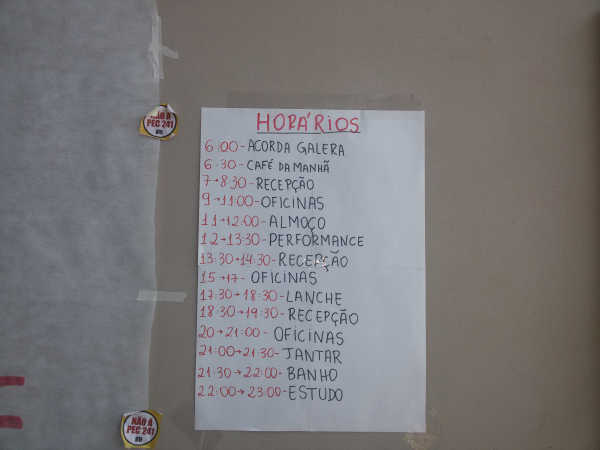 HORÁRIOS
6:00-ACORDA GALERA
6:30-CAFÉ DA MANHÃ
7→8:30-RECEPÇÃO
9→11:00-OFICINAS
11→12:00-ALMOÇO
12→13:30-PERFORMANCE
13:30→14:30-RECEPÇÃO
15→17-OFICINAS
17:30→18:30-LANCHE
18:30→19:30-RECEPÇÃO
20→21:00-OFICINAS
21:00→21:30-JANTAR
21:30→22:00-BANHO
22:00→23:00-ESTUDO
NÃO A
PEC 241
NÃO A
PEC 241